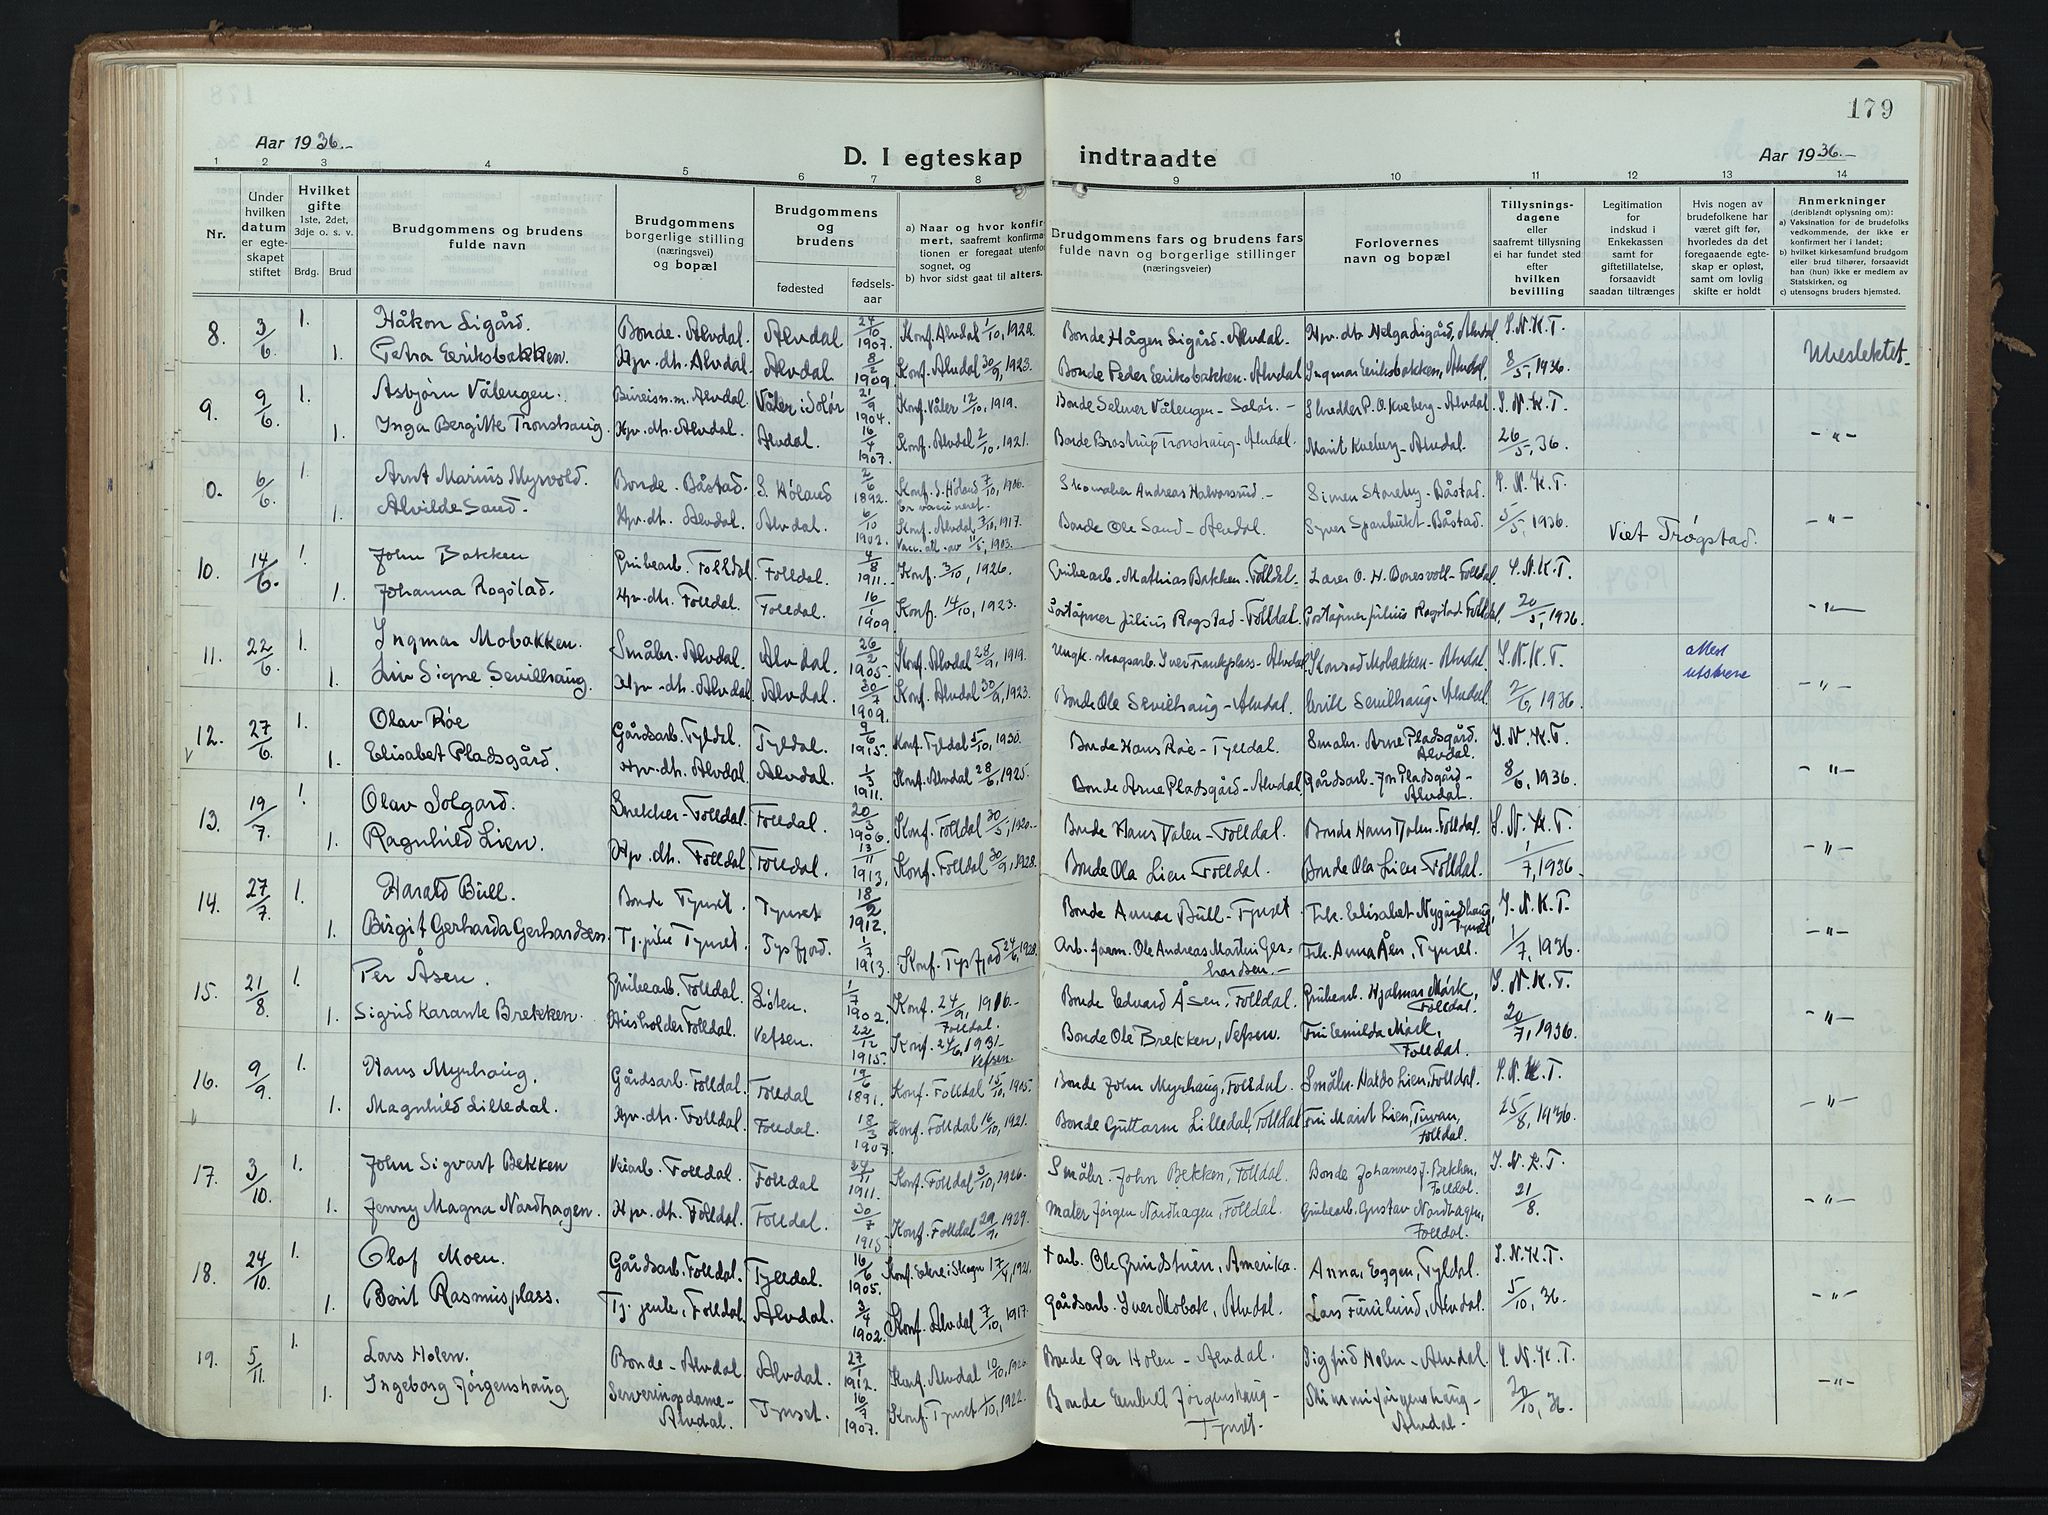 179
Aar 1936.-
D. I egteskap indtraadte
Aar 1936.-
1 2 3 4 5 6 7 8 9 10 11 12 13 14
Nr.
Under hvilken datum er egteskapet stiftet
Hvilket gifte
1ste, 2det, 3dje o. s. v.
Brdg. Brud
Brudgommens og brudens fulde navn
Brudgommens borgerlige stilling (næringsvei) og bopæl
Brudgommens og brudens
fødested
fødselsaar
a) Naar og hvor konfirmert, saafremt konfirmationen er foregaat utenfor sognet, og
b) hvor sidst gaat til alters.
Brudgommens fars og brudens fars fulde navn og borgerlige stillinger (næringsveier)
Forlovernes navn og bopæl
Tillysningsdagene eller saafremt tillysning ei har fundet sted efter hvilken bevilling
Legitimation for indskud i Enkekassen samt for giftetillatelse, forsaavidt saadan tiltrænges
Hvis nogen av brudefolkene har været gift før, hvorledes da det foregaaende egteskap er opløst, samt om lovlig skifte er holdt
Anmerkninger (deriblandt oplysning om):
a) Vaksination for de brudefolks vedkommende, der ikke er konfirmert her i landet;
b) hvilket kirkesamfund brudgom eller brud tilhører, forsaavidt han (hun) ikke er medlem av Statskirken, og
c) utensogns bruders hjemsted.
8 3/6 1. Håkon Sigård. Bonde. Alvdal. Alvdal 24/10 1907. Konf. Alvdal 1/10, 1922. Bonde Hågen Sigård - Alvdal. Hpv. dtr. Helga Sigård, Alvdal S. N. K. T. Ubeslektet
1. Petra Eeriksbakken. Hpv. dtr. Alvdal Alvdal 8/2 1909 Konf. Alvdal 30/9, 1923. Bonde Peder Eeriksbakken. Alvdal Ingmar Eeriksbakken, Alvdal. 8/5, 1936.
9. 9/6. 1. Asbjørn Vålengen. Bureisn.m. Alvdal Våler i Solør 21/9 1904 Konf. Våler 12/10, 1919. Bonde Selmer Vålengen - Solør. - P. O. Kveberg - Alvdal S. N. K. T. - " -
1. Inga Bergitte Tronshaug. Hpv. dtr. Alvdal. Alvdal. 16/4 1907. Konf. Alvdal 2/10, 1921. Bonde Brostrup Tronshaug - Alvdal. Marit Kveberg - Alvdal. 26/5, 36.
0. 6/6. 1. Arnt Marius Myrvold. Bonde. Båstad. S. Høland 2/6 1892. Konf. S. Høland 7/10, 1906. Er vaccineret. Skomaker Andreas Halvorsrud. - Simen Stareby - Båstad. S. N. K. T. - " -
1. Alvilde Sand. Hpv. dtr. Alvdal. Alvdal. 6/10 1902. Konf. Alvdal 7/10, 1917. Vacc. att. av 11/5, 1903. Bonde Ole Sand - Alvdal. Syver Spanbukt - Båstad. 3/5, 1936. Viet Trøgstad.
10. 14/6. 1. John Bakken Grubearb. Folldal Folldal. 4/8 1911. Konf. 3/10, 1926. Grubearb. Mathias Bakken - Folldal - Lærer O. H. Bonesvoll - Folldal S. N. K. T. - " -
1. Johanna Rogstad. Hpv. dtr. Folldal. Folldal. 16/1 1909. Konf. 14/10, 1923. Poståpner Julius Rogstad - Folldal. Poståpner Julius Rogstad. Folldal, 20/5, 1936
11. 22/6 1. Ingmar Mobakken. Småbr. Alvdal. Alvdal. 26/2 1905. Konf. Alvdal 28/9, 1919. Ungk. skogsarb. Iver Frankplass - Alvdal. Konrad Mobakken - Alvdal. S. N. K. T. Med - " -
1. Liv Signe Sevilhaug. Hpv. dtr. Alvdal Alvdal. 30/7 1909. Konf. Alvdal 30/9, 1923. Bonde Ole Sevilhaug - Alvdal. Eerik Sevilhaug - Alvdal. 2/6, 1936.
12. 27/6. 1. Olav Røe Gårdsarb. Tyldal. Tyldal. 9/6 1915. Konf. Tyldal 5/10, 1930. Bonde Hans Røe - Tylldal. Småbr. Arne Pladsgård. Alvdal. S. N. K. T. - " -
1. Elisabet Pladsgård. Hpv. dtr. Alvdal Alvdal. 1/3 1911. Konf. Alvdal 28/6, 1925. Bonde Arne Pladsgård - Alvdal. Gårdsarb. Jon Pladsgård - Alvdal. 8/6, 1936.
13. 19/7. 1. Olav Solgard. Snekker - Folldal. Folldal. 20/3 1906. Konf. Folldal 30/5, 1920. Bonde Hans Dalen - Folldal. Bonde Hans Dalen - Folldal. S. N. K. T. - " -
1. Ragnhild Lien. Hpv. dtr. Folldal. Folldal. 13/11 1913. Konf. Folldal 30/9, 1928. Bonde Ola Lien - Folldal. Bonde Ola Lien - Folldal. 1/7, 1936
14. 27/7. 1. Harald Büll. Bonde Tynset. Tynset 18/2 1912. Bonde Büll - Tynset. Frk. Eelisabet Nygårdshaug, Tynset S. N. K. T. - " -
1. Birgit Gerharda Gerhardsen Tj. pike Tynset. Tysfjord. 1/7 1913. Konf. Tysfjord 24/6, 1928. Arb. form. Ole Andreas Martin Gerhardsen. - Frk. Anna Åen, Tynset. 1/7, 1936.
15. 21/8. 1. Per Åsen. Grubearb. Folldal. Løten. 1/7 1902. Konf. 24/9, 1916. - Folldal. Bonde Edvard Åsen, Folldal. Grubearb. Hjalmar Mårk, Folldal. S. N. K. T. - " -
1. Sigrid Karante Brekken. Husholder Folldal. Vefsen. 22/12 1915. Konf. 24/6, 1931 - Vefsen. Bonde Ole Brekken, Vefsen. Fru Eemilda Mårk, Folldal. 20/7, 1936.
16. 9/9. 1. Hans Myrhaug. Gårdsarb. Folldal. Folldal 19/6 1891. Konf. Folldal 15/10, 1905. Bonde John Myrhaug, Folldal. Småbr. Haldo Lien, Folldal. S. N. K. T. - " -
1. Magnhild Lilledal. Hpv. dtr. Folldal. Folldal. 18/3 1907. Konf. Folldal 16/10, 1921. Bonde Guttorm Lilledal, Folldal Fru Marit Lien, Folldal. 25/8, 1936.
17. 3/10. 1. John Sigvart Bekken Veiarb. Folldal. Folldal 24/11 1911. Konf. Folldal 3/10, 1926. Småbr. John Bekken, Folldal. Bonde Johannes J. Bekken, Folldal. S. N. K. T. - " -
1. Jenny Magna Nordhagen. Hpv. dtr. Folldal. Folldal. 30/7 1915 Konf. Folldal 29/9, 1929. Maler Jørgen Nordhagen, Folldal. Grubearb. Gustav Nordhagen, Folldal. 21/8.
18. 24/10. 1. Olaf Moen. Gårdsarb. Folldal. Tylldal. 16/6 1905. Konf. 17/4, 1921. † arb. Ole Grindstuen, Amerika. Anna Eggen, Tyldal. S. N. K. T. - " -
1. Berit Rasmusplass. Tj. jente, Folldal. Alvdal. 3/4 1902. Konf. Alvdal 7/10, 1917. Gårdsarb. Iver Mobak, Alvdal. Lars Alvdal. 5/10, 36.
19. 5/11. 1. Lars Holen. Bonde - Alvdal. Alvdal. 27/1 1912. Konf. Alvdal 10/10, 1926. Bonde Per Holen - Alvdal. Sigfrid Holen - Alvdal S. N. K. T. - " -
1. Ingeborg Jørgenshaug. Serveringsdame - Alvdal. Tynset. 16/7 1907. Konf. Tynset 1/10, 1922. Bonde Eembret Jørgenshaug - Tynset. Mimmi Jørgenshaug - Alvdal. 20/10, 36.